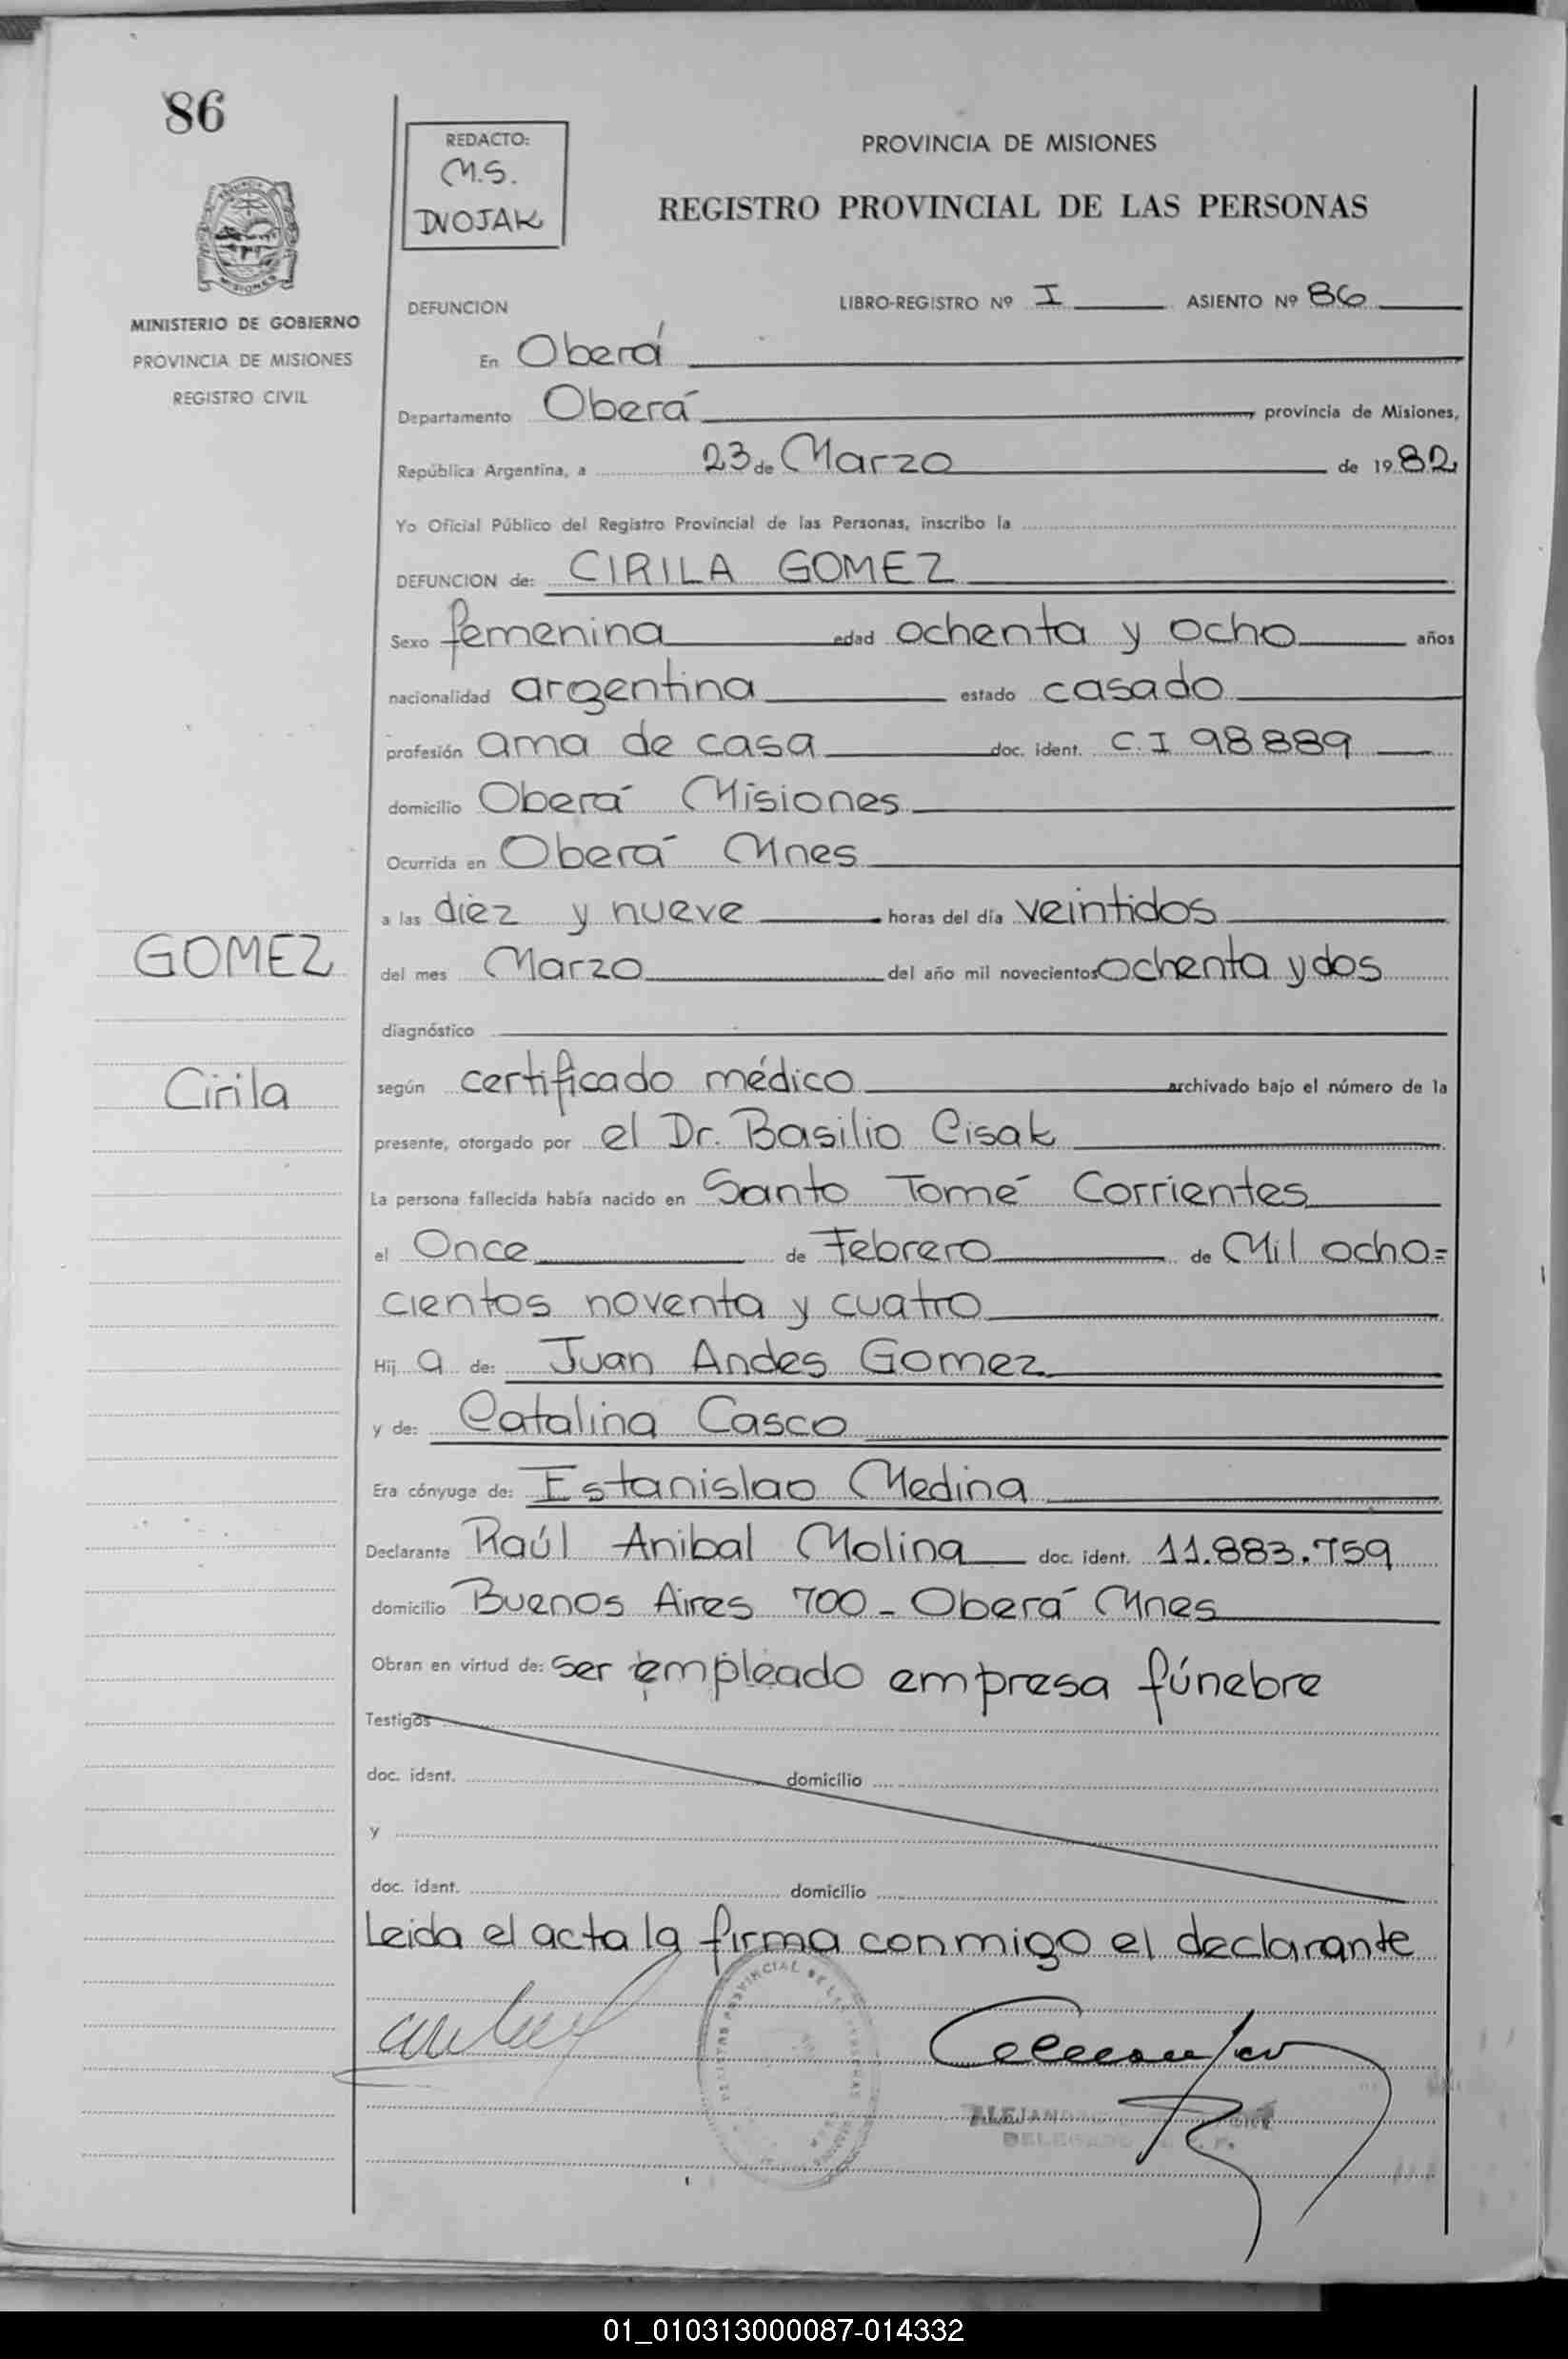 86
REDACTO:
M.S.
DVOJAK
PROVINCIA DE MISIONES
REGISTRO PROVINCIAL DE LAS PERSONAS
MISIONES
MINISTERIO DE GOBIERNO
PROVINCIA DE MISIONES
REGISTRO CIVIL
DEFUNCION LIBRO-REGISTRO Nº I ASIENTO Nº 86
En Oberá
Departamento Oberá, provincia de Misiones,
República Argentina, a 23 de Marzo de 1982
Yo Oficial Público del Registro Provincial de las Personas, inscribo la
DEFUNCION de: CIRILA GOMEZ
Sexo femenina edad ochenta y ocho años
nacionalidad argentina estado casado
profesión ama de casa doc. ident. C.I 98889
domicilio Oberá Misiones
Ocurrida en Oberá Mnes
a las diez y nueve horas del día veintidos
GOMEZ
del mes Marzo del año mil novecientos ochenta y dos
diagnóstico
Cirila
según certificado médico archivado bajo el número de la
presente, otorgado por el Dr. Basilio Cisak
La persona fallecida había nacido en Santo Tomé Corrientes
el Once de Febrero de Mil ocho=
cientos noventa y cuatro
Hij a de: Juan Andes Gomez
y de: Catalina Casco
Era cónyuge de: Estanislao Medina
Declarante Raúl Anibal Molina doc. ident. 11.883.759
domicilio Buenos Aires 700 - Oberá Mnes
Obran en virtud de: ser empleado empresa fúnebre
Testigos
doc. ident. domicilio
y
doc. ident. domicilio
Leida el acta la firma conmigo el declarante
01_010313000087-014332